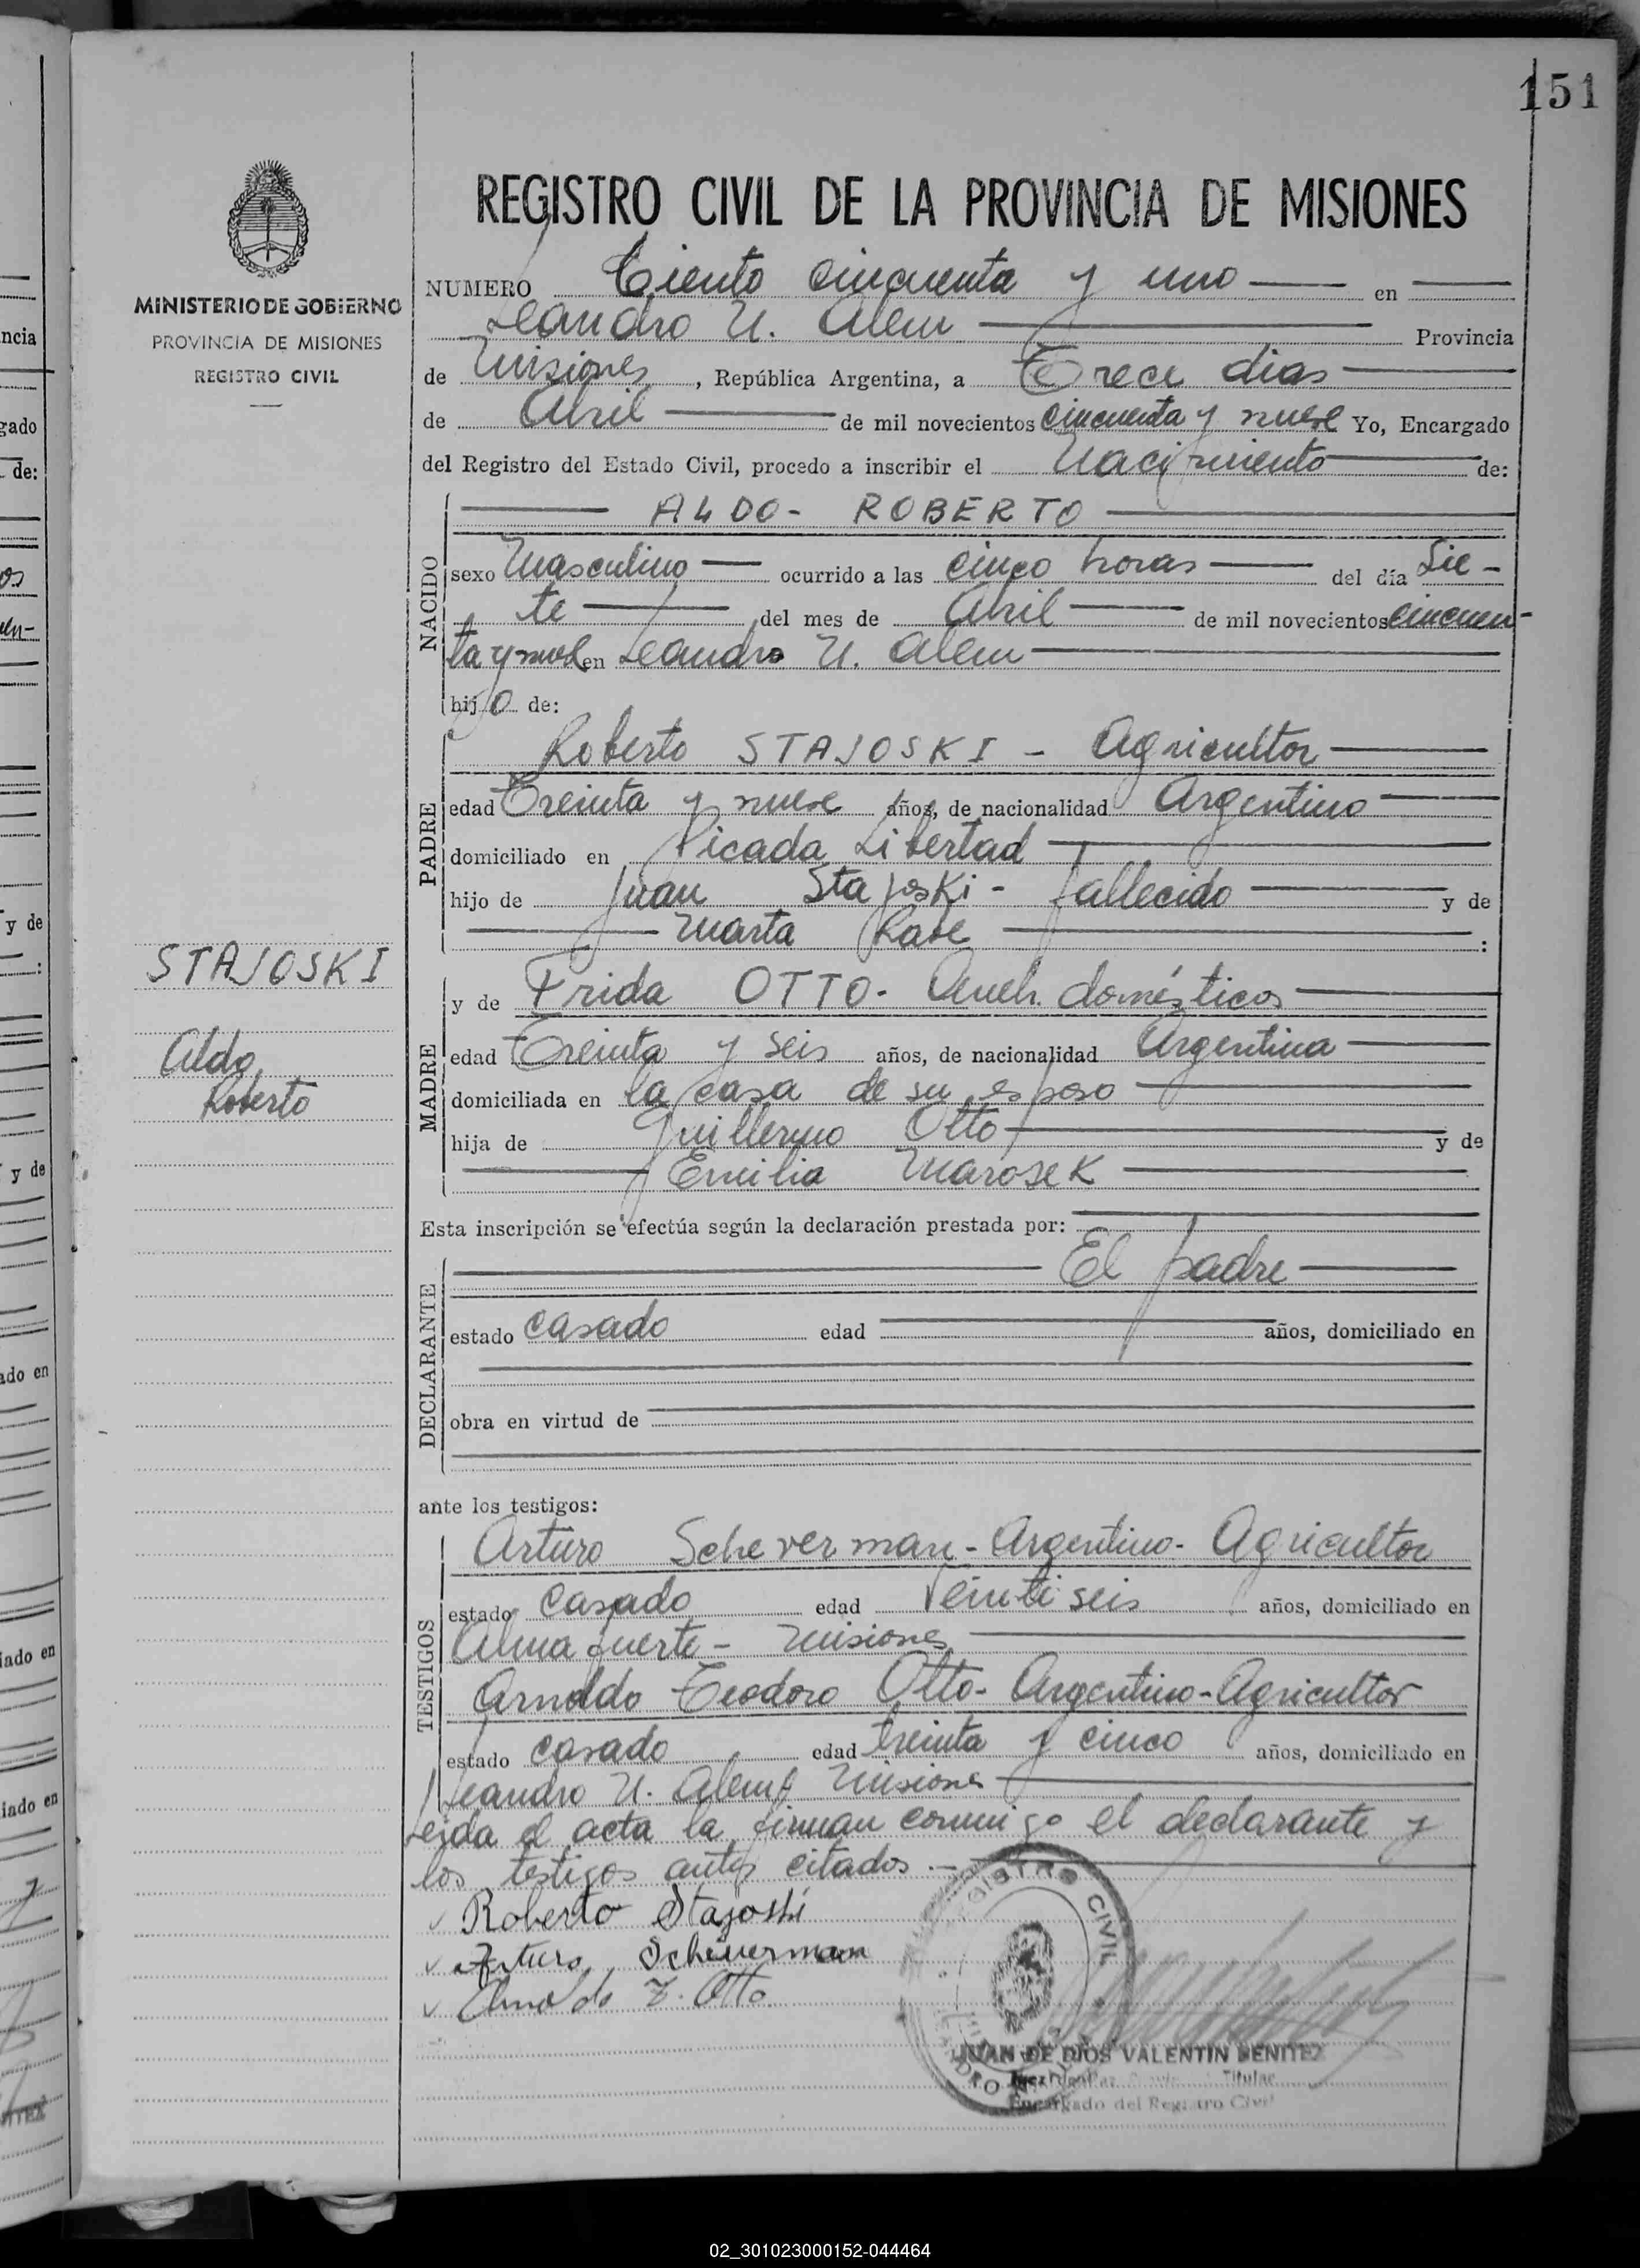 151
REGISTRO CIVIL DE LA PROVINCIA DE MISIONES
MINISTERIO DE GOBIERNO
PROVINCIA DE MISIONES
REGISTRO CIVIL
NUMERO Ciento cincuenta y uno en
Leandro N. Alem Provincia
de Misiones, República Argentina, a Trece dias
de Abril de mil novecientos cincuenta y nueve Yo, Encargado
del Registro del Estado Civil, procedo a inscribir el Nacimiento de:
NACIDO
ALDO - ROBERTO
sexo Masculino ocurrido a las cinco horas del día Sie-
te del mes de Abril de mil novecientos cincuen-
ta y nueve en Leandro N. Alem
hijo de:
PADRE
Roberto STAJOSKI - Agricultor
edad Treinta y nueve años, de nacionalidad Argentino
domiciliado en Picada Libertad
hijo de Juan Stajoski - fallecido y de
Marta :
STAJOSKI
Aldo
Roberto
MADRE
y de Frida OTTO - domésticos
edad Treinta y seis años, de nacionalidad Argentina
domiciliada en la casa de su esposo
hija de Guillermo Otto y de
Emilia Marosek
Esta inscripción se efectúa según la declaración prestada por:
DECLARANTE
El padre
estado casado edad años, domiciliado en
obra en virtud de
ante los testigos:
TESTIGOS
Arturo Schever man - Argentino - Agricultor
estado casado edad Veinti seis años, domiciliado en
Alma fuerte - Misiones
Arnoldo Teodoro Otto - Argentino - Agricultor
estado casado edad treinta y cinco años, domiciliado en
Leandro N. Alem Misiones
Leida el acta la firman conmigo el declarante y
los testigos antes citados.-
Roberto Stajoski
Arturo Scheuerman
Arnoldo T. Otto
REGISTRO CIVIL
JUAN DE DIOS VALENTIN BENITEZ
Titular
Encargado del Registro Civil
ncia
gado
de:
y de
y de
ado en
iado en
iado en
02_301023000152-044464